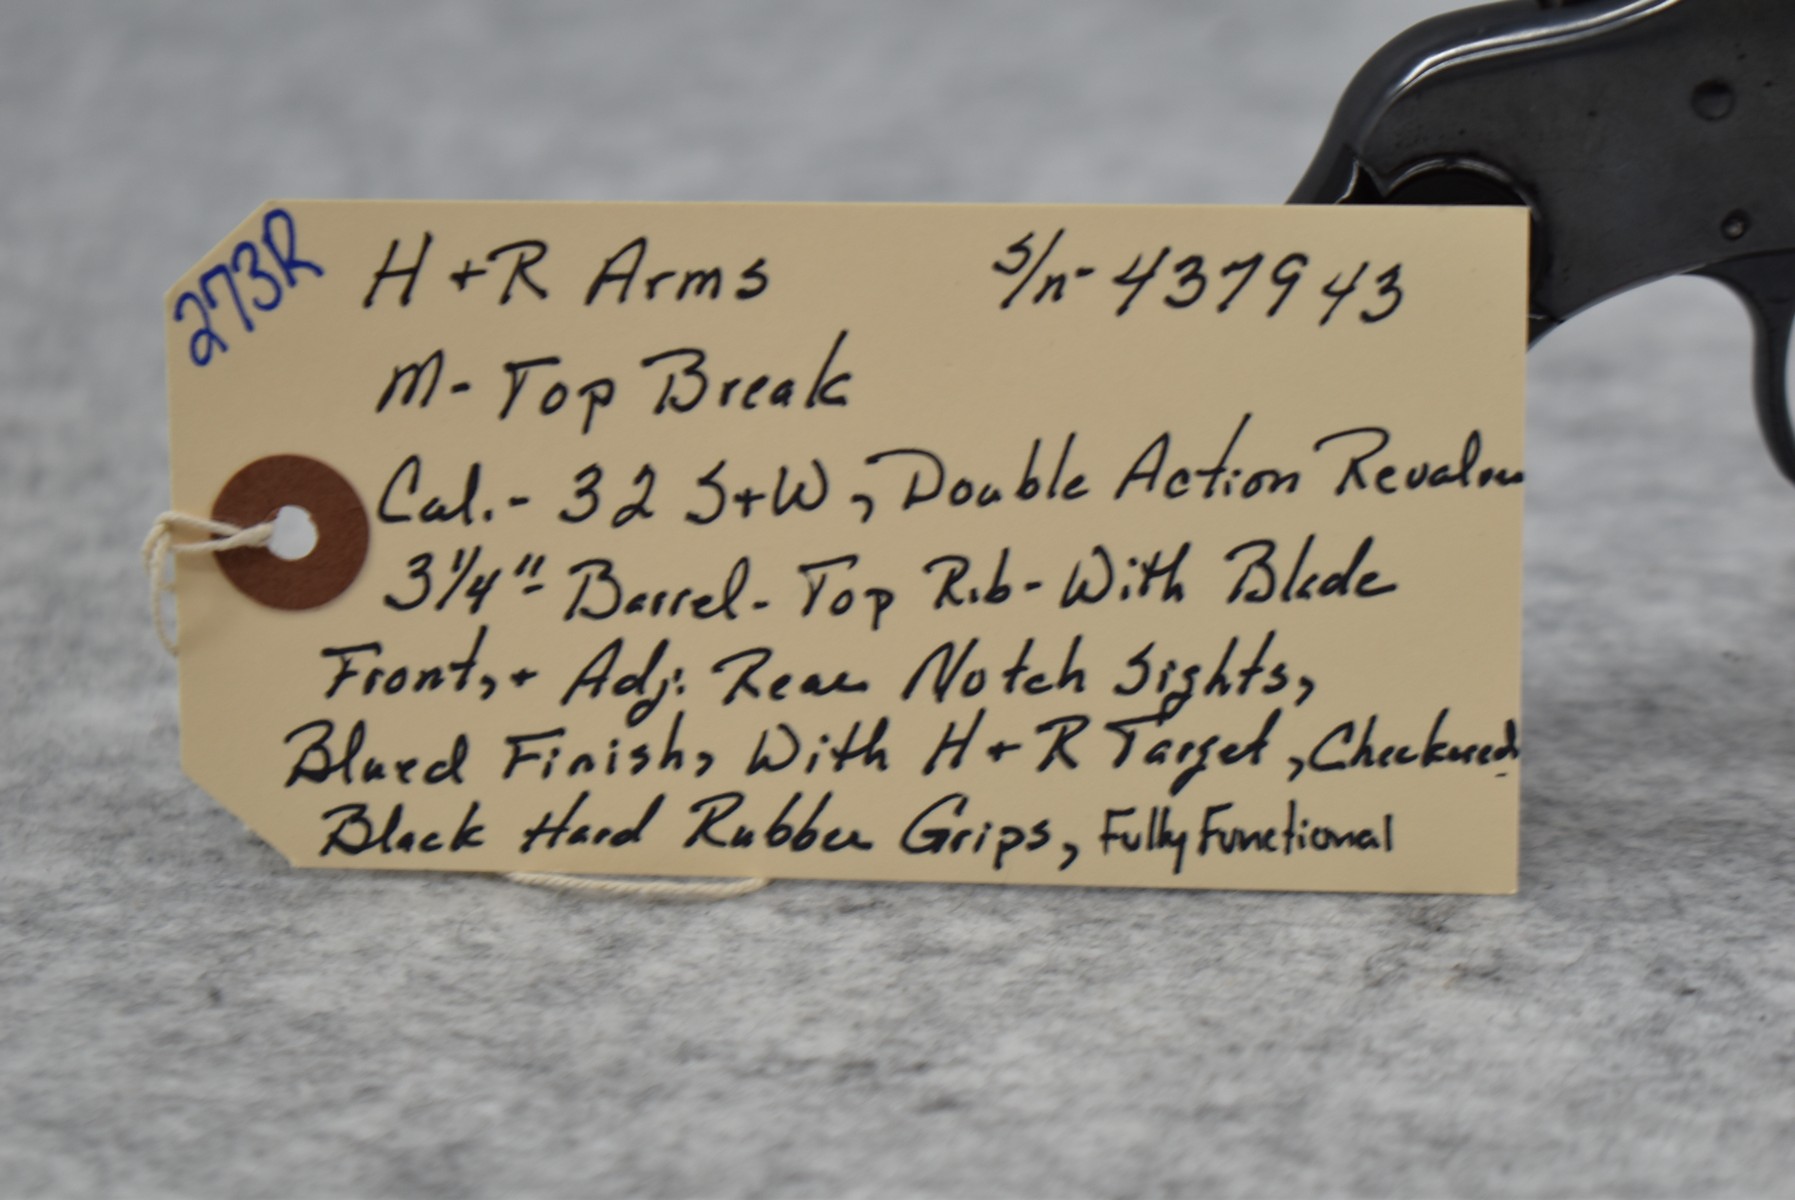 273R
H + R Arms S/n- 437943
M- Top Break
Cal.- 32 S+W, Double Action Revalour
3 1/4"- Barrel- Top Rib- With Blade
Front, + Adj. Rear Notch Sights,
Blued Finish, With H + R Target, Checkered
Black Hard Rubber Grips, Fully Functional